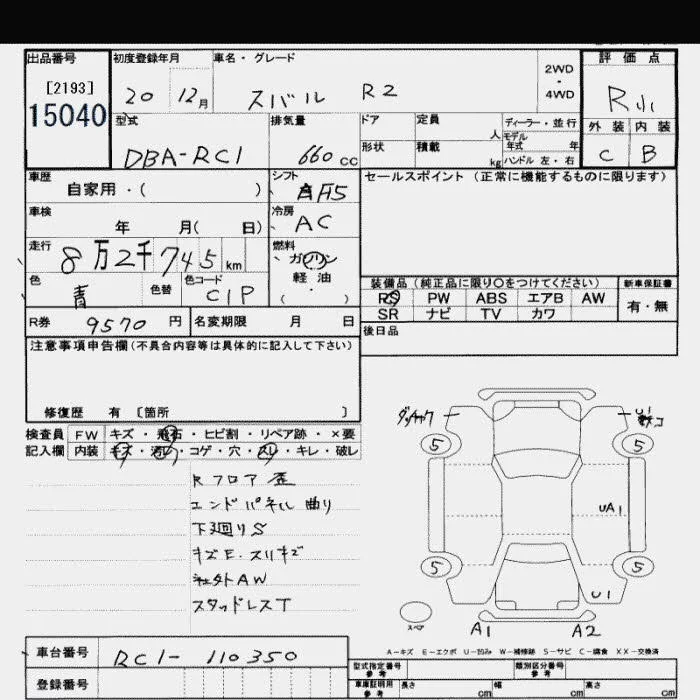 出品番号
[2193]
15040
初度登録年月
20 12月
車名・グレード
スバル R2
2WD
・
4WD
評価点
R小
外装 内装
C B
型式
DBA-RC1
排気量
660 CC
ドア
定員
人
ディーラー・並行
モデル年式 年
形状
積載
kg
ハンドル 左・右
車歴
自家用・( )
シフト
F5
セールスポイント (正常に機能するものに限ります)
車検
年 月( 日)
冷房
AC
走行
8万2千745km
燃料
ガソリン
軽油
( )
色
青
色替
色コード
C1P
装備品 (純正品に限り○をつけてください)
新車保証書
PS PW ABS エアB AW
SR ナビ TV カワ
有・無
R券 9570 円
名変期限 月 日
後日品
注意事項申告欄(不具合内容等は具体的に記入して下さい)
修復歴 有 〔箇所 〕
検査員
記入欄
FW キズ・飛石・ヒビ割・リペア跡・×要
内装 キズ・汚レ・コゲ・穴・スレ・キレ・破レ
Rフロア歪
エンドパネル曲り
下廻りS
キズE・スリキズ
社外AW
スタッドレスT
U1
5
5
UA1
5
5
U1
スペア
A1
A2
A-キズ E-エクボ U-凹み W-補修跡 S-サビ C-腐食 XX-交換済
車台番号
RC1-110350
登録番号
型式指定番号
参考
類別区分番号
参考
車庫証明用
参考
長さ cm
幅 cm
高さ cm